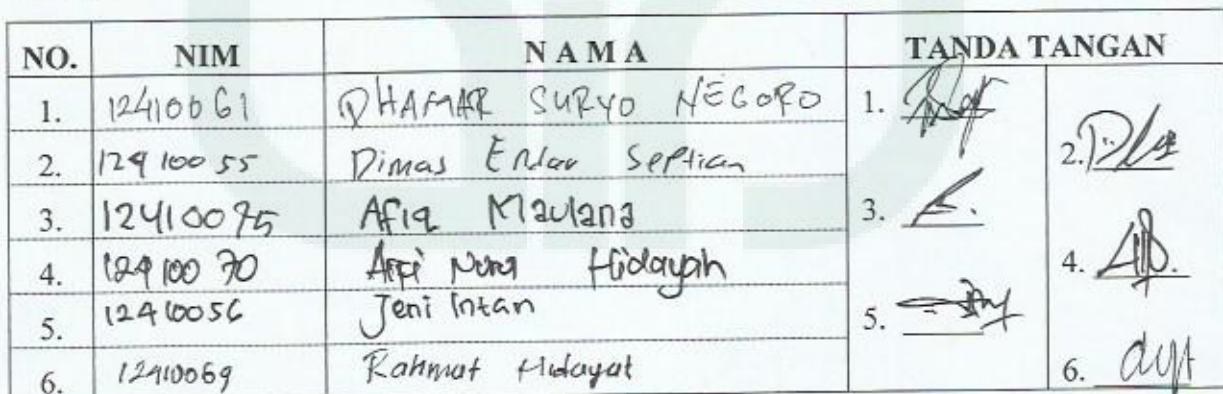 NO. NIM NAMA TANDA TANGAN
1. 12410061 DHAMAR SURYO NEGORO 1.
2. 12410055 Dimas Septian 2.
3. 12410075 Afiq Maulana 3.
4. 12410070 Hidayah 4.
5. 12410056 Jeni Intan 5.
6. 12410069 Rahmat Hidayat 6.